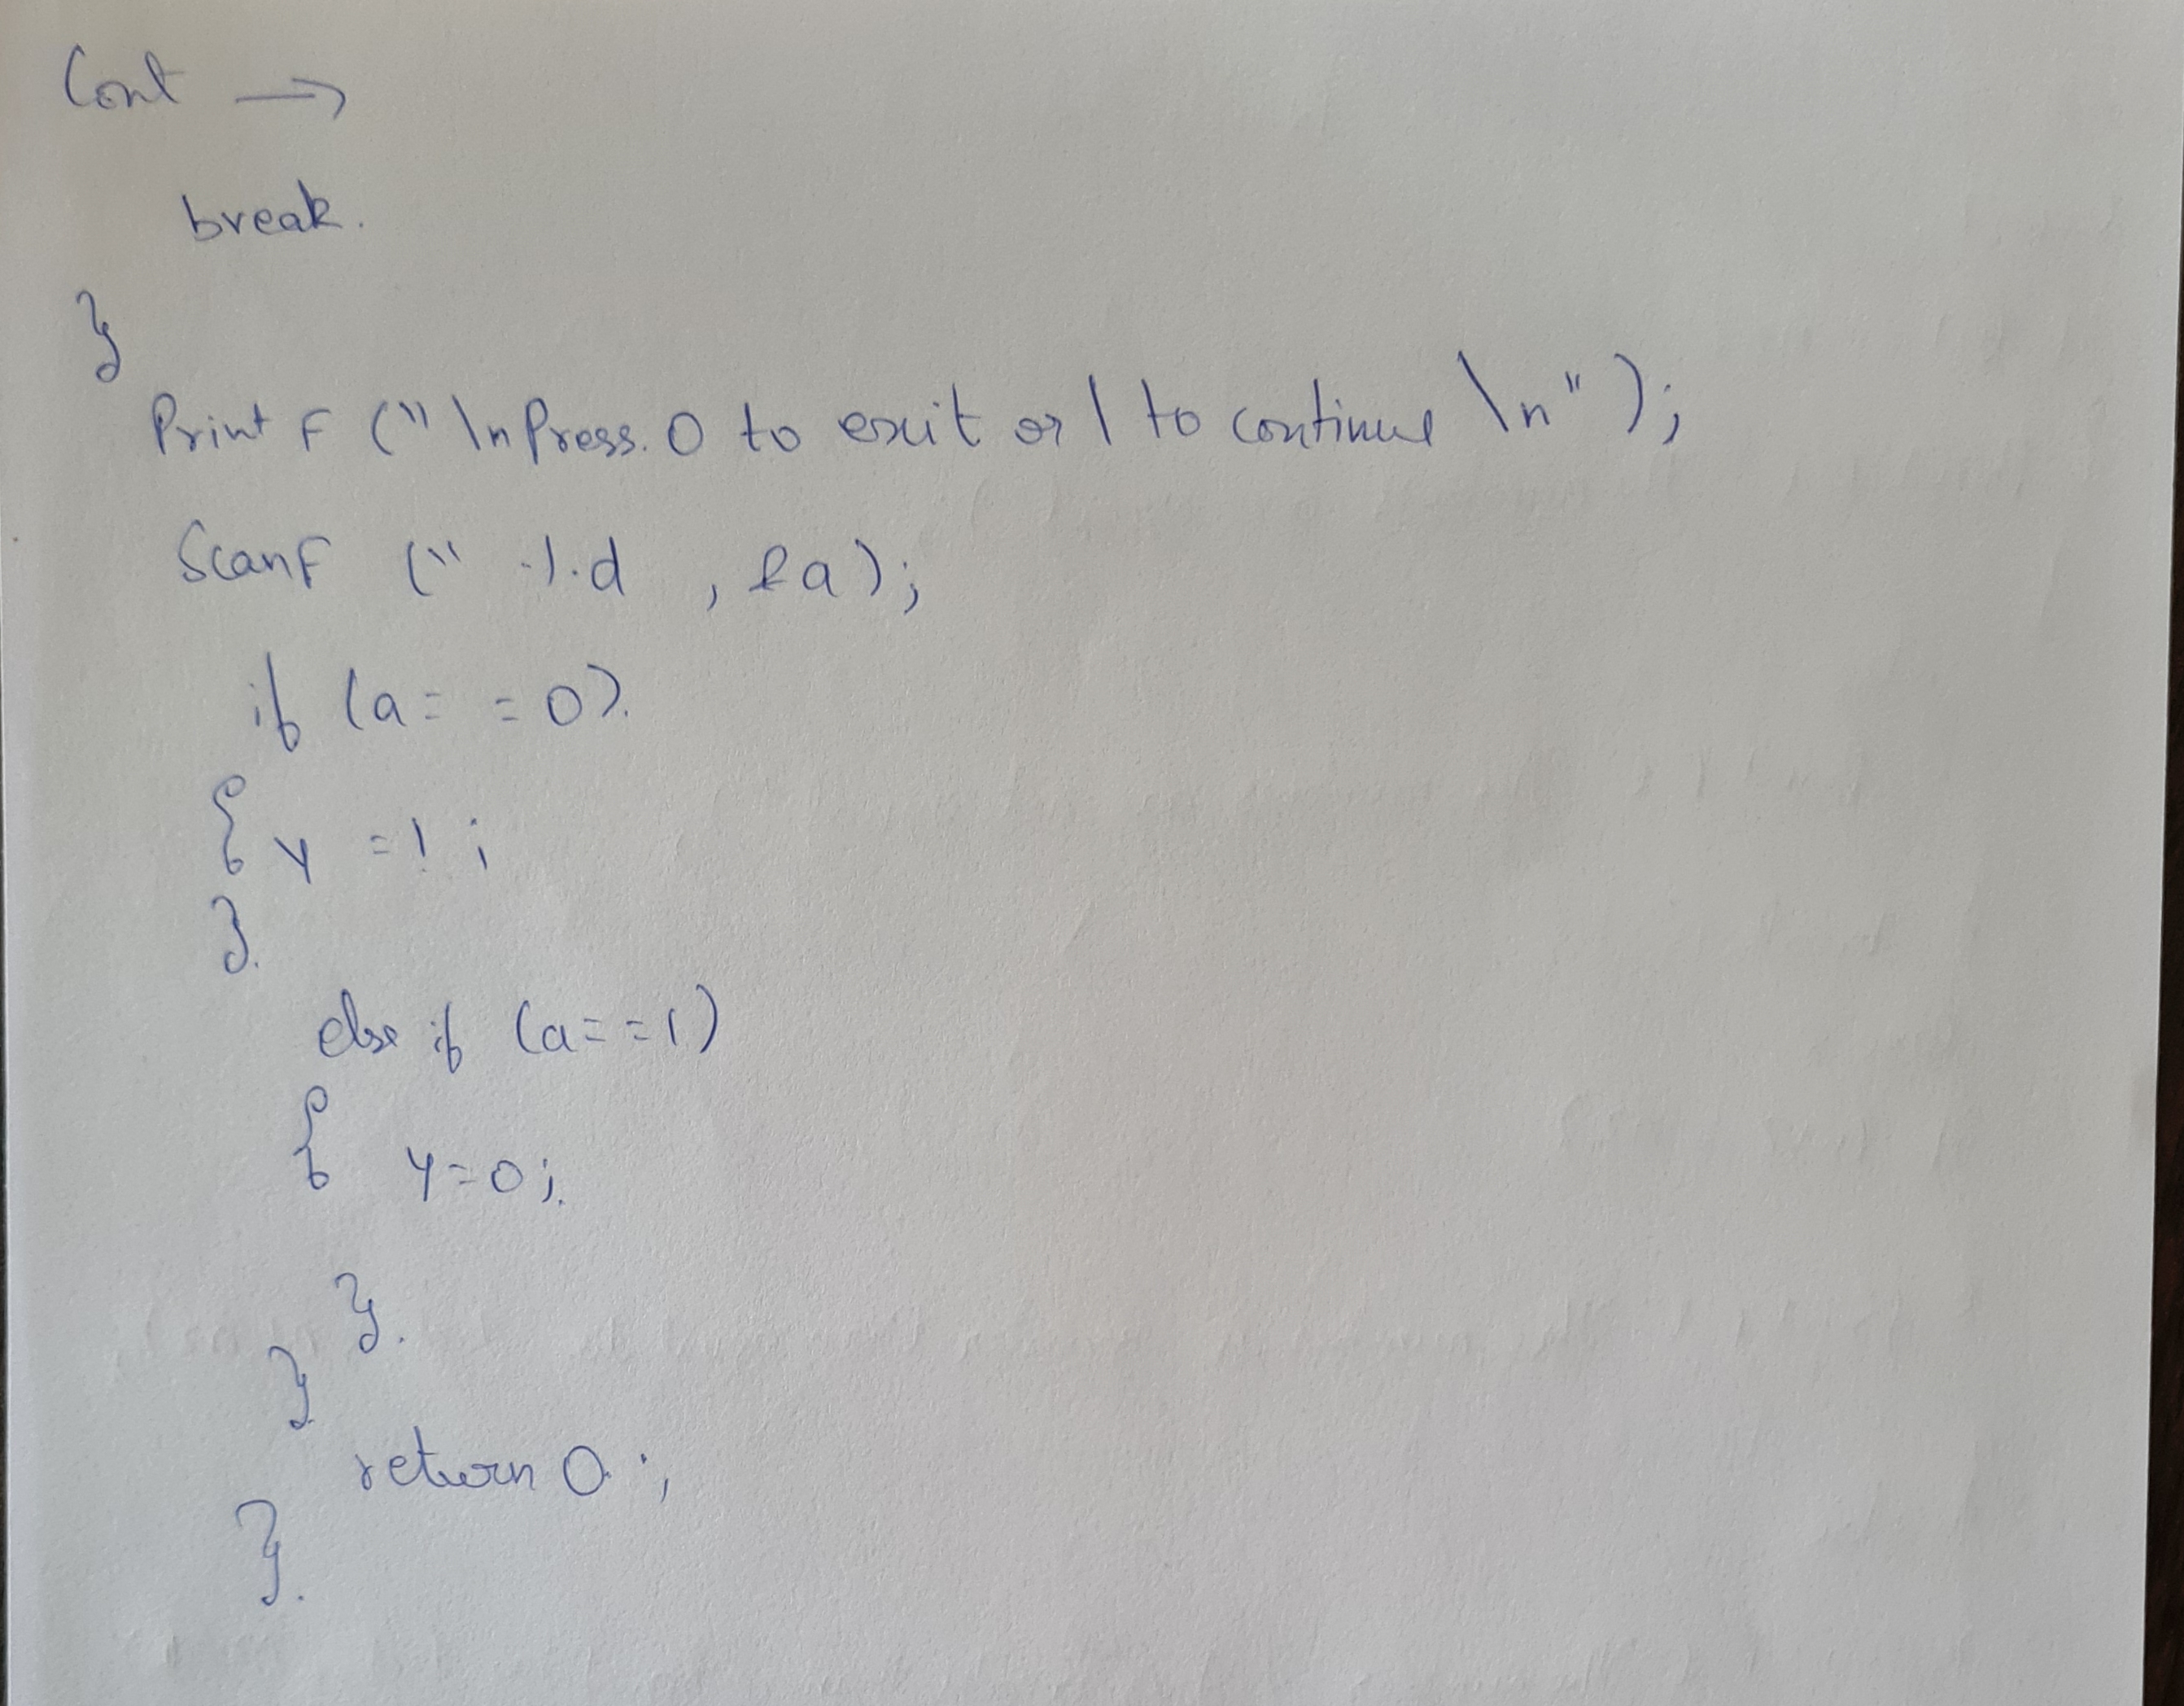 Cont →
break.
}
Printf ("\nPress. 0 to exit or 1 to continue \n");
Scanf (" %d , &a);
if (a= =0).
{ y =1 ;
}.
else if (a= =1)
{ y=0;.
}.
}
return 0. ;
}.